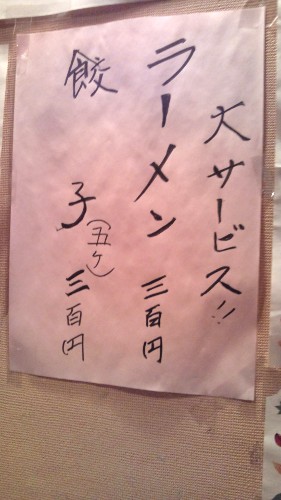 大サービス!!
ラーメン 三百円
餃子(五ケ) 三百円